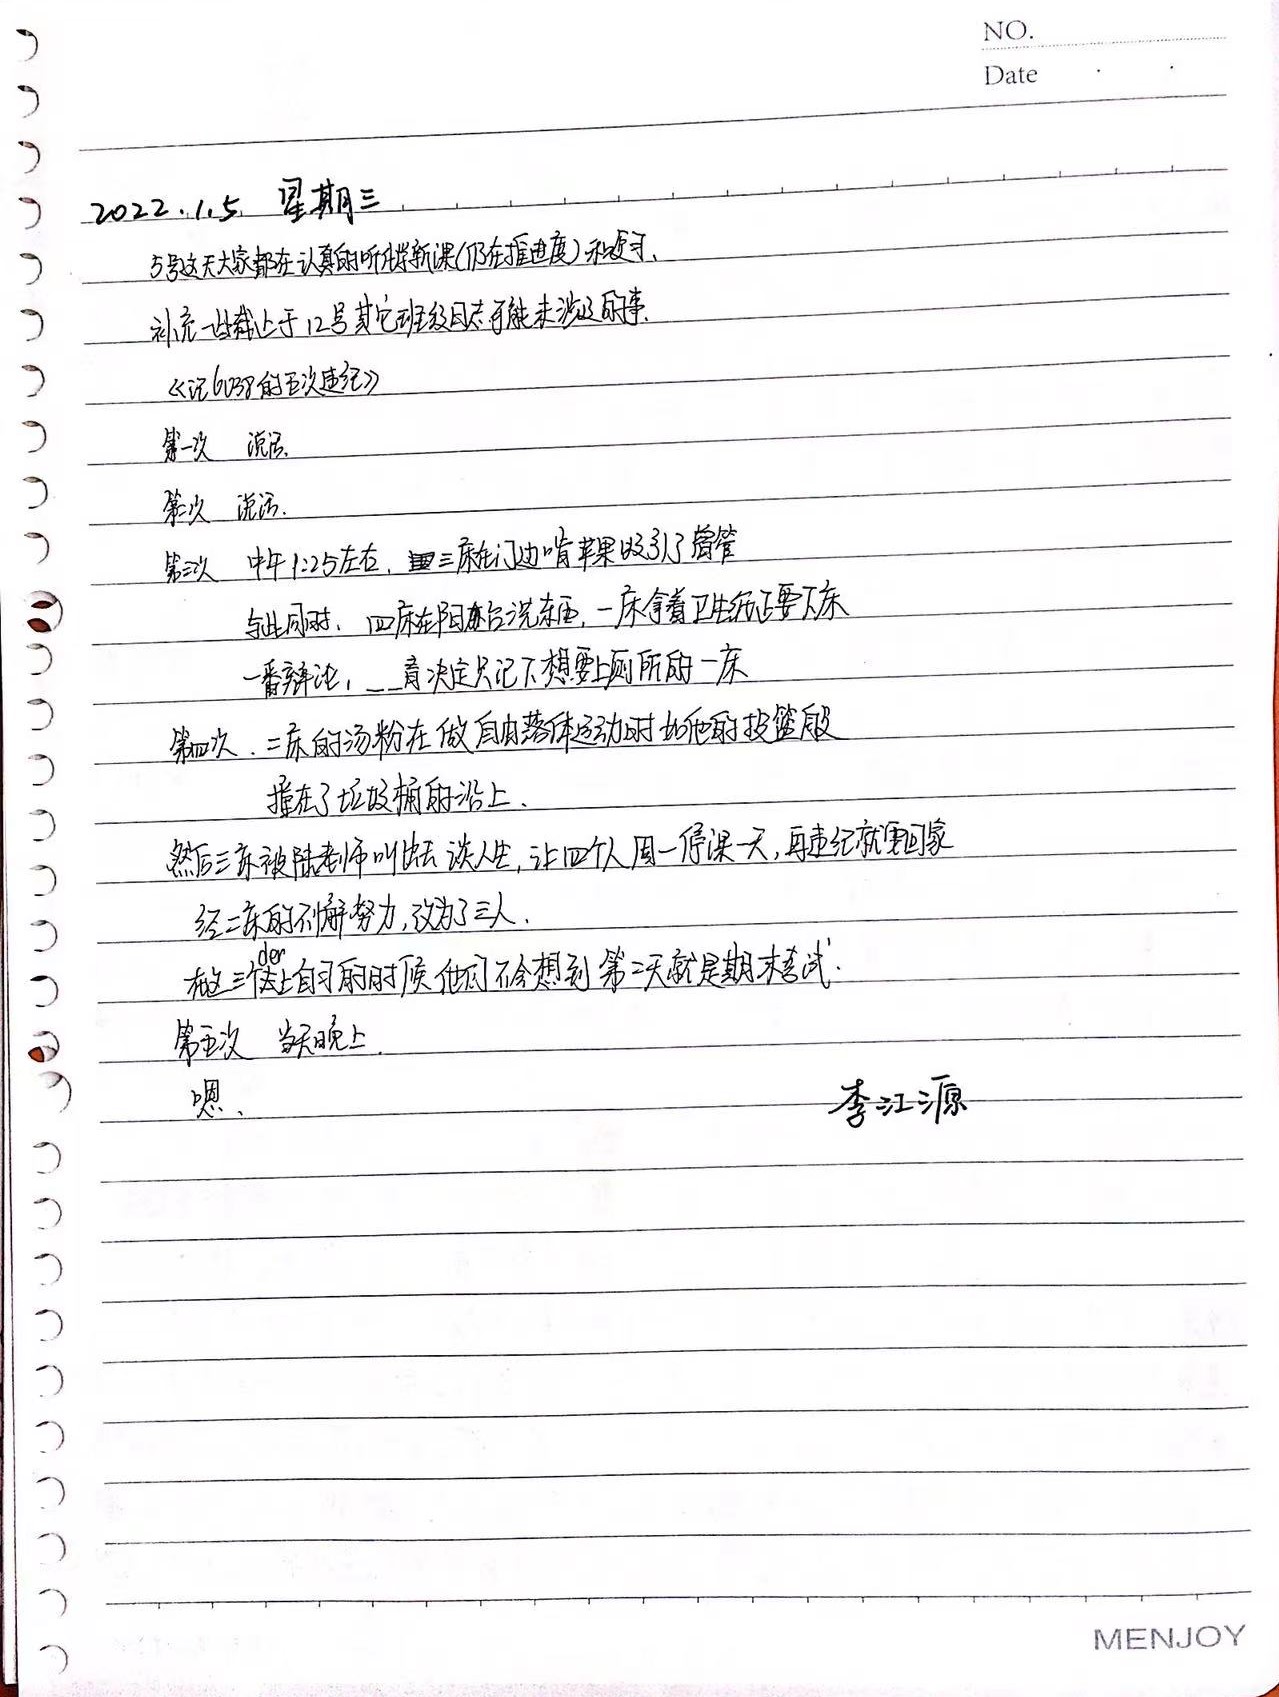 NO.
Date
2022.1.5 星期三
5号这天大家都在认真的听化学新课(仍在推进度)和复习.
补充一些截止于12号其它班级日志可能未涉及的事.
《记6038的五次违纪》
第一次 说话.
第二次 说话.
第三次 中午1:25左右, 三床在门边啃苹果吸引了宿管
与此同时, 四床在阳台洗东西, 一床拿着卫生纸正要下床
一番辩论, __育决定只记下想要上厕所的一床
第四次. 二床的汤粉在做自由落体运动时如他的投篮般
撞在了垃圾桶的沿上.
然后三床被陆老师叫出去谈人生, 让四个人周一停课一天, 再违纪就要回家
经二床的不懈努力, 改为了三人.
在这三个 上自习的时候他们不会想到第二天就是期末考试.
der
第五次 当天晚上.
嗯.
李江源
MENJOY